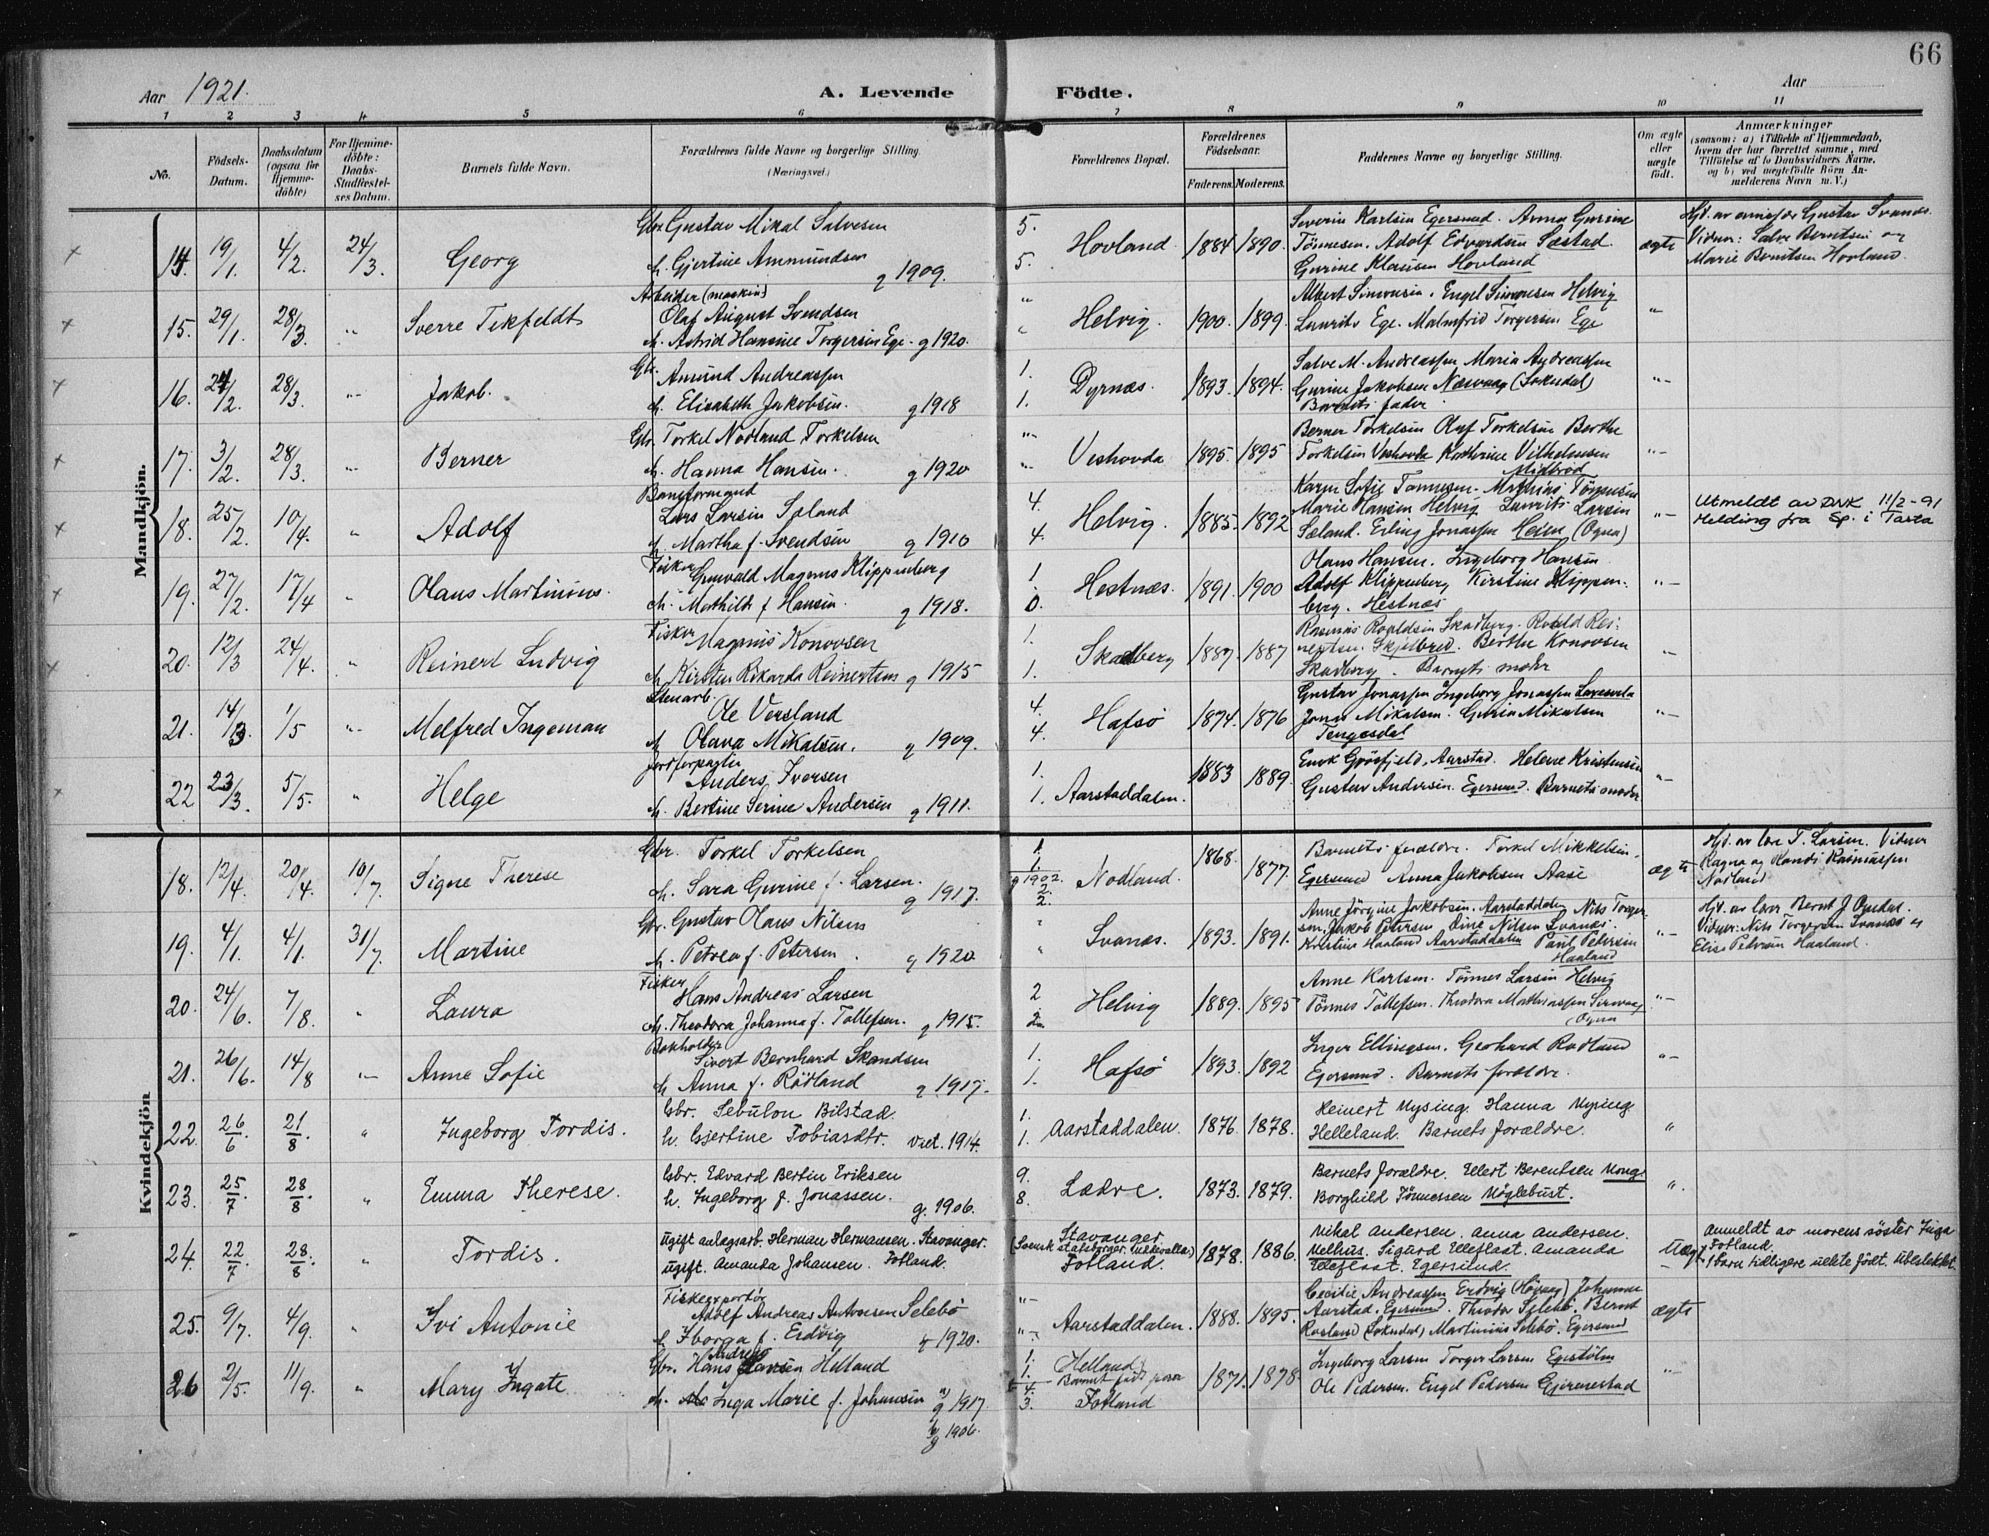 66
Aar 1921.
A. Levende Födte.
Aar
1 2 3 4 5 6 7 8 9 10 11
No.
Födsels-Datum.
Daabsdatum (ogsaa for Hjemme-döbte)
For Hjemme-döbte: Daabs-Stadfæstel-ses Datum.
Barnets fulde Navn.
Forældrenes fulde Navne og borgerlige Stilling.
(Næringsvei.)
Forældrenes Bopæl.
Forældrenes Födselsaar.
Faderens. Moderens.
Faddernes Navne og borgerlige Stilling.
Om ægte eller uægte födt.
Anmærkninger
(saasom: a) i Tilfælde af Hjemmedaab, hvem der har forrettet samme, med Tilföielse af to Daabsvidners Navne, og b) ved uægtefödte Börn Anmelderens Navn m. V.)
Mandkjön.
14. 19/1. 4/2. 24/3. Georg
Gbr. Gustav Mikal Salvesen
h. Gjertine Ammundsen g 1909.
5. 5. Hovland 1884 1890.
Severin Karlsen Egersund. Anna Gurine
Tønnesen. Adolf Edvardsen Sæstad.
Gurine Klausen Hovland
ægte
Hjd. av Gustav Svanes.
Vidner: Salve Berntsen og
Marie Berntsen Hovland.
15. 29/1. 28/3. " Sverre Tekfeldt
Arbeider (maskin)
Olaf August Svendsen
h. Astrid Hansine Torgersen Ege. g 1920.
" " Helvig. 1900. 1899.
Albert Simonsen. Engel Simonsen Helvig
Lauritz Ege. Malmfrid Torgersen Ege
"
16. 24/2. 28/3. " Jakob.
Gbr. Amund Andreassen
h. Elisabeth Jakobsen. g 1918
1. 1. Dyrnæs. 1893. 1894.
Salve M. Andreassen Maria Andreassen
Gurine Jakobsen Næsvaag (Sokndal)
Barnets fader.
"
17. 3/2. 28/3. " Berner
Gbr. Torkel Nodland Torkelsen
h. Hanna Hansen. g 1920
" " Veshovda 1895. 1895
Berner Torkelsen Olaf Torkelsen Berthe
Torkelsen Veshovde Kathrine Vilhelmsen
Midbrød
"
18. 25/2. 10/4. " Adolf
Baneformand
Lars Larsen Sæland
h. Martha f. Svendsen g 1910
4. 4. Helvig. 1885. 1892
Karen Sofie Tønnesen. Mathias Tønnesen
Marie Hansen Helvig Lauritz Larsen
Sæland. Erling Jonassen Heien (Ogna)
"
Utmeldt av DNK 11/2-91
Melding fra sp. i Tasta
19. 27/2. 17/4 " Olaus Martinius.
Fisker Grunvald Magnus Klippenberg
h. Mathilde f. Hansen. g 1918.
1. 0. Hestnæs. 1891. 1900
Olaus Hansen. Ingeborg Hansen
Adolf Klippenberg Kirstine Klippenberg. Hestnæs
"
20. 12/3 24/4. " Reinert Ludvig
Fisker Magnus Konovsen
h. Kirsten Rikarda Reinertsen g 1915
1. 1. Skadberg 1887. 1887
Rasmus Roaldsen Skadberg. Roald Reinertsen. Skjelbred. Berthe Konovsen
Skadberg. Barnets moder
"
21. 14/3. 1/5 " Melfred Ingeman
Stenarb. Ole Versland
h. Olava Mikalsen. g 1909.
4. 4. Hafsø 1874. 1876
Gustav Jonassen Ingeborg Jonassen
Jonas Mikalsen. Guria Mikalsen
Tengesdal
"
22 23/3. 5/5. " Helge
Jordforpagter
Anders Iversen
h. Bertine Serine Andersen g 1911.
1. 1. Aarstaddalen. 1883 1889.
Enok Grøsfjeld, Aarstad. Helene Kristensen
Gustav Andersen. Egersund. Barnets moder
"
Kvindekjön
18. 12/4. 20/4. 10/7 Signe Therese
Gbr. Torkel Torkelsen
h. Sara Gurine f. Larsen. g 1917.
1. 1. g 1902 2. 2. Nodland. 1868. 1877.
Barnets forældre. Torkel Mikkelsen.
Egersund Anna Jakobsen Aase
ægte
Hjd. av T. Larsen. Vidner
Ragna og Kandi Rasmussen
Nodland
19. 4/1. 4/1. 31/7. Martine
Gbr. Gustav Olaus Nilsen
h. Petrea f. Petersen. g 1920.
" " Svanæs. 1893. 1891.
Anne Jørgine Jakobsen. Aarstaddalen Nils Torgersen. Jakob Petersen Line Nilsen Svanæs.
Kristine Haaland Aarstaddalen Paul Petersen
Haaland
"
Hjd. av lærer Bernt J.
Vidner: Nils Torgersen Svanæs og
Elise Petersen Haaland.
20. 24/6. 7/8. " Laura
Fisker Hans Andreas Larsen
h. Theodora Johanna f. Tollefsen. g 1915.
2 2. Helvig 1889. 1895
Anne Karlsen. Tønnes Larsen Helvig
Tønnes Tollefsen. Theodora Mathiassen Sirevaag
(Ogna
"
21. 26/6. 14/8 " Anne Sofie
Bokholder Sivert Bernhard Skandsen
h. Anna f. Rödland g 1917.
1. 1. Hafsø 1893. 1892
Inger Ellingsen. Gerhard Rødland
Egersund. Barnets forældre.
"
22. 26/6 21/8. " Ingeborg Tordis.
Gbr. Sebulon Bilstad.
h. Gjertine Tobiasdtr. viet. 1914.
1. 1. Aarstaddalen. 1876. 1878.
Reinert Nysing. Hanna Nysing
Helleland. Barnets forældre.
"
23. 25/7 28/8. " Emma Therese.
Gbr. Edvard Bertin Eriksen
h. Ingeborg f. Jonassen. g. 1906.
9. 8. Lædre. 1873. 1879.
Barnets forældre. Ellert Berentsen Mong
Borghild Tönnessen Nöglebust.
"
24. 22/7 28/8. " Tordis.
ugift anlægsarb. Herman Hermansen. Stavanger.
ugift. Amanda Johansen. Fotland.
Stavanger
(Svensk statsborger. Uddevalla)
Fotland. 1878. 1886.
Mikal Andersen. Anna Andersen.
Melhus. Sigurd Elleflaat. Amanda
Elleflaat. Egersund.
Uægte
Anmeldt av morens söster Inga
Fotland.
1 barn tidligere uekte födt. Ubeslektet.
25. 9/7. 4/9. " Svi Antonie
Fiskeexportør
Adolf Andreas Antonsen Selebö
h. Iborga f. Erdvig g 1920.
" " Aarstaddalen. 1888. 1895.
Cecilie Andreassen Erdvig Johanne
Aarstad. Egersund. Theodor Selebö. Bernt
Rosland (Sokndal) Martinius Selebö. Egersund
ægte
26 2/5. 11/9. " Mary Ingate
Gbr. Hans Andreas Helland
h. Inga Marie f. Johansen g 1917
g 1906.
1. 1. 4. 3. Helland)
Barnet født paa
Fotland
1871. 1878
Ingeborg Larsen Torger Larsen Egestølen
Ole Pedersen. Engel Pedersen Gjermestad
"